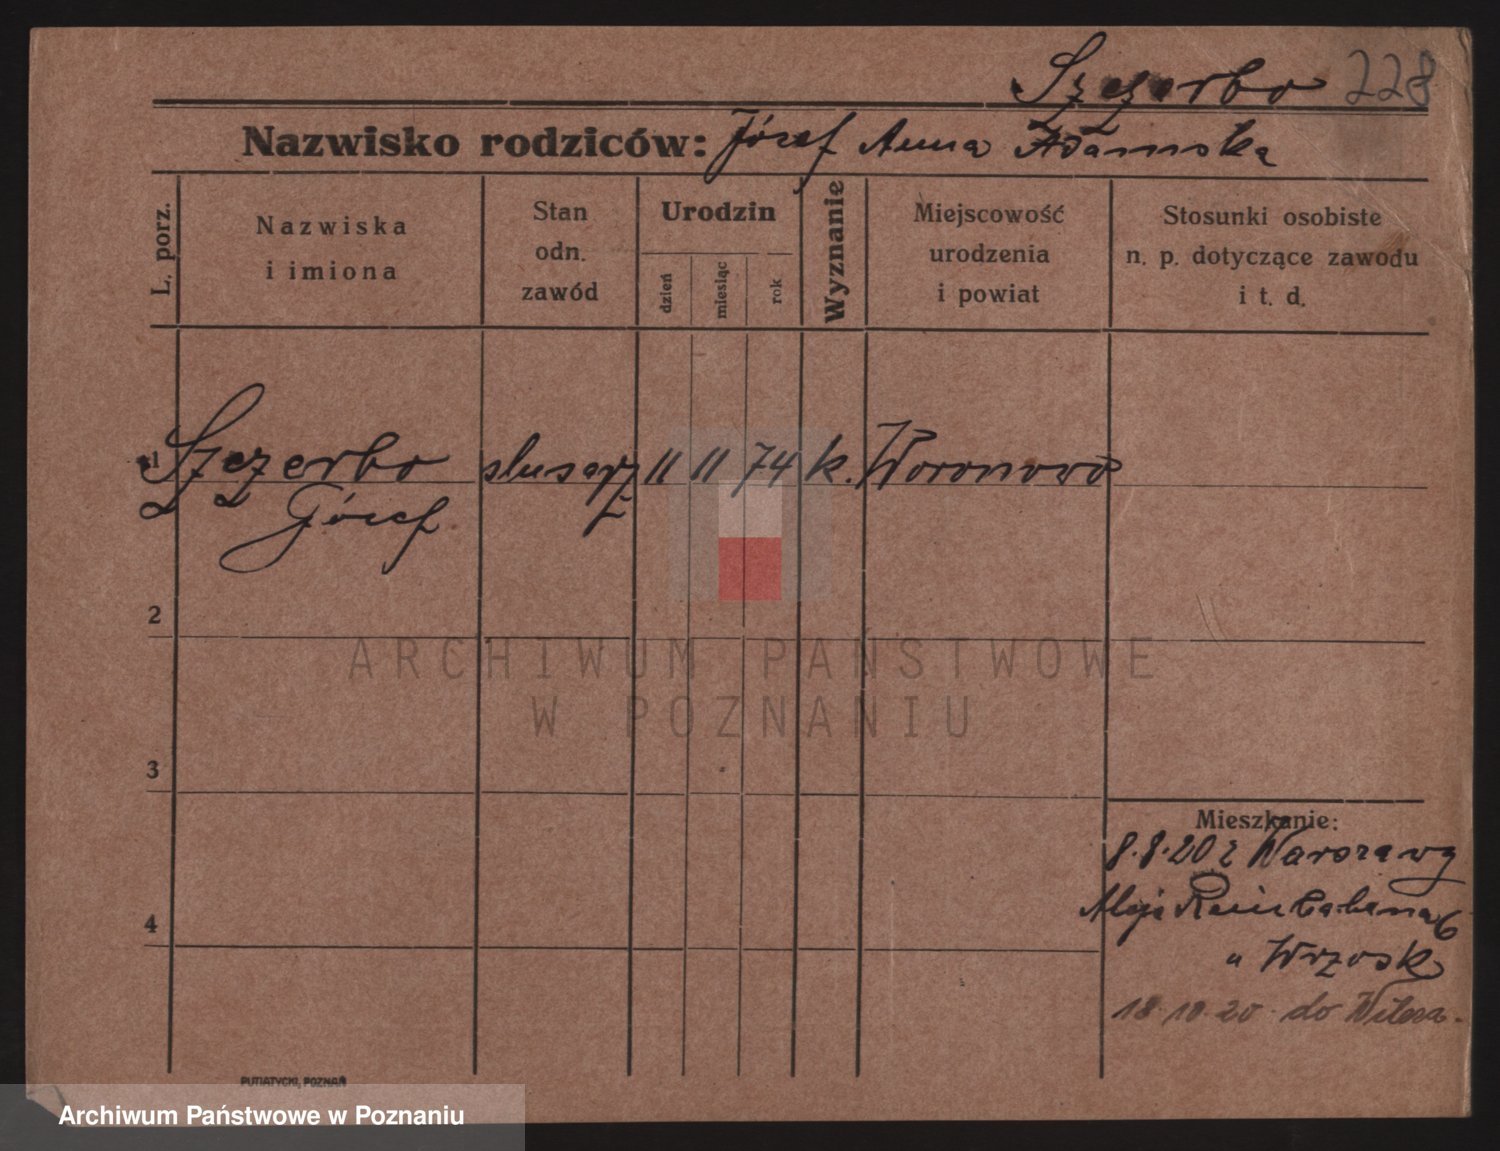 Szczerbo 228
Nazwisko rodziców: Józef Anna Adamska
L. porz.
Nazwiska
i imiona
Stan
odn.
zawód
Urodzin
dzień
miesiąc
rok
Wyznanie
Miejscowość
urodzenia
i powiat
Stosunki osobiste
n. p. dotyczące zawodu
i t. d.
1 Szczerbo ślusarz 11 11 74 k. Woronowo
Józef
2
3
4
Mieszkanie:
8.8.20 z Warszawy
Aleja 6
u Wrzosk
18.10.20 do
PUTIATYCKI, POZNAŃ
ARCHIWUM PAŃSTWOWE
W POZNANIU
Archiwum Państwowe w Poznaniu